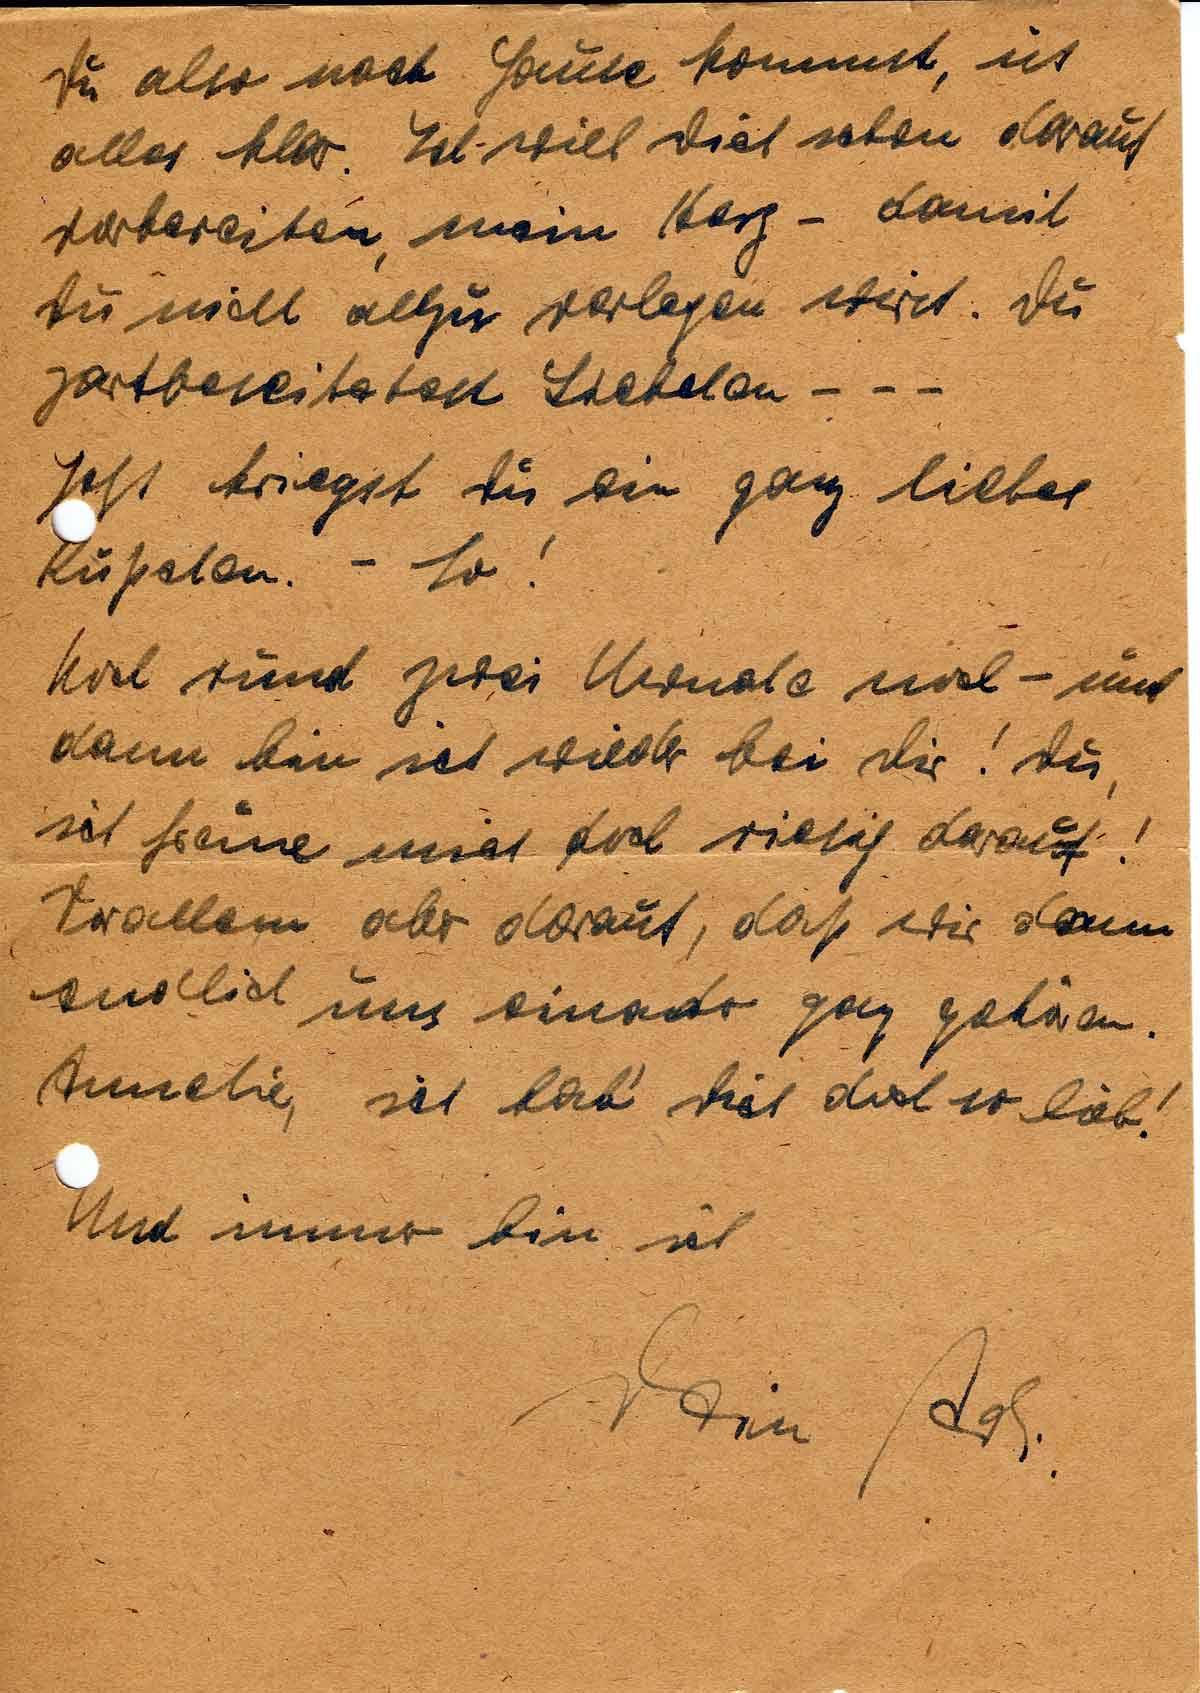 Du also nach Hause kommst, ist
alles klar. Ich will Dich schon darauf
vorbereiten, mein Herz - damit
Du nicht allzu verlegen wirst. Du
zartbesaitetes - - -
Jetzt kriegst Du ein ganz liebes
Küßchen. - So!
Noch rund zwei Monate noch - und
dann bin ich wieder bei Dir! Du,
ich freue mich doch riesig darauf!
Vorallem aber darauf, daß wir dann
endlich uns einander ganz gehören.
Annelie, ich hab' Dich doch so lieb!
Und immer bin ich
Dein